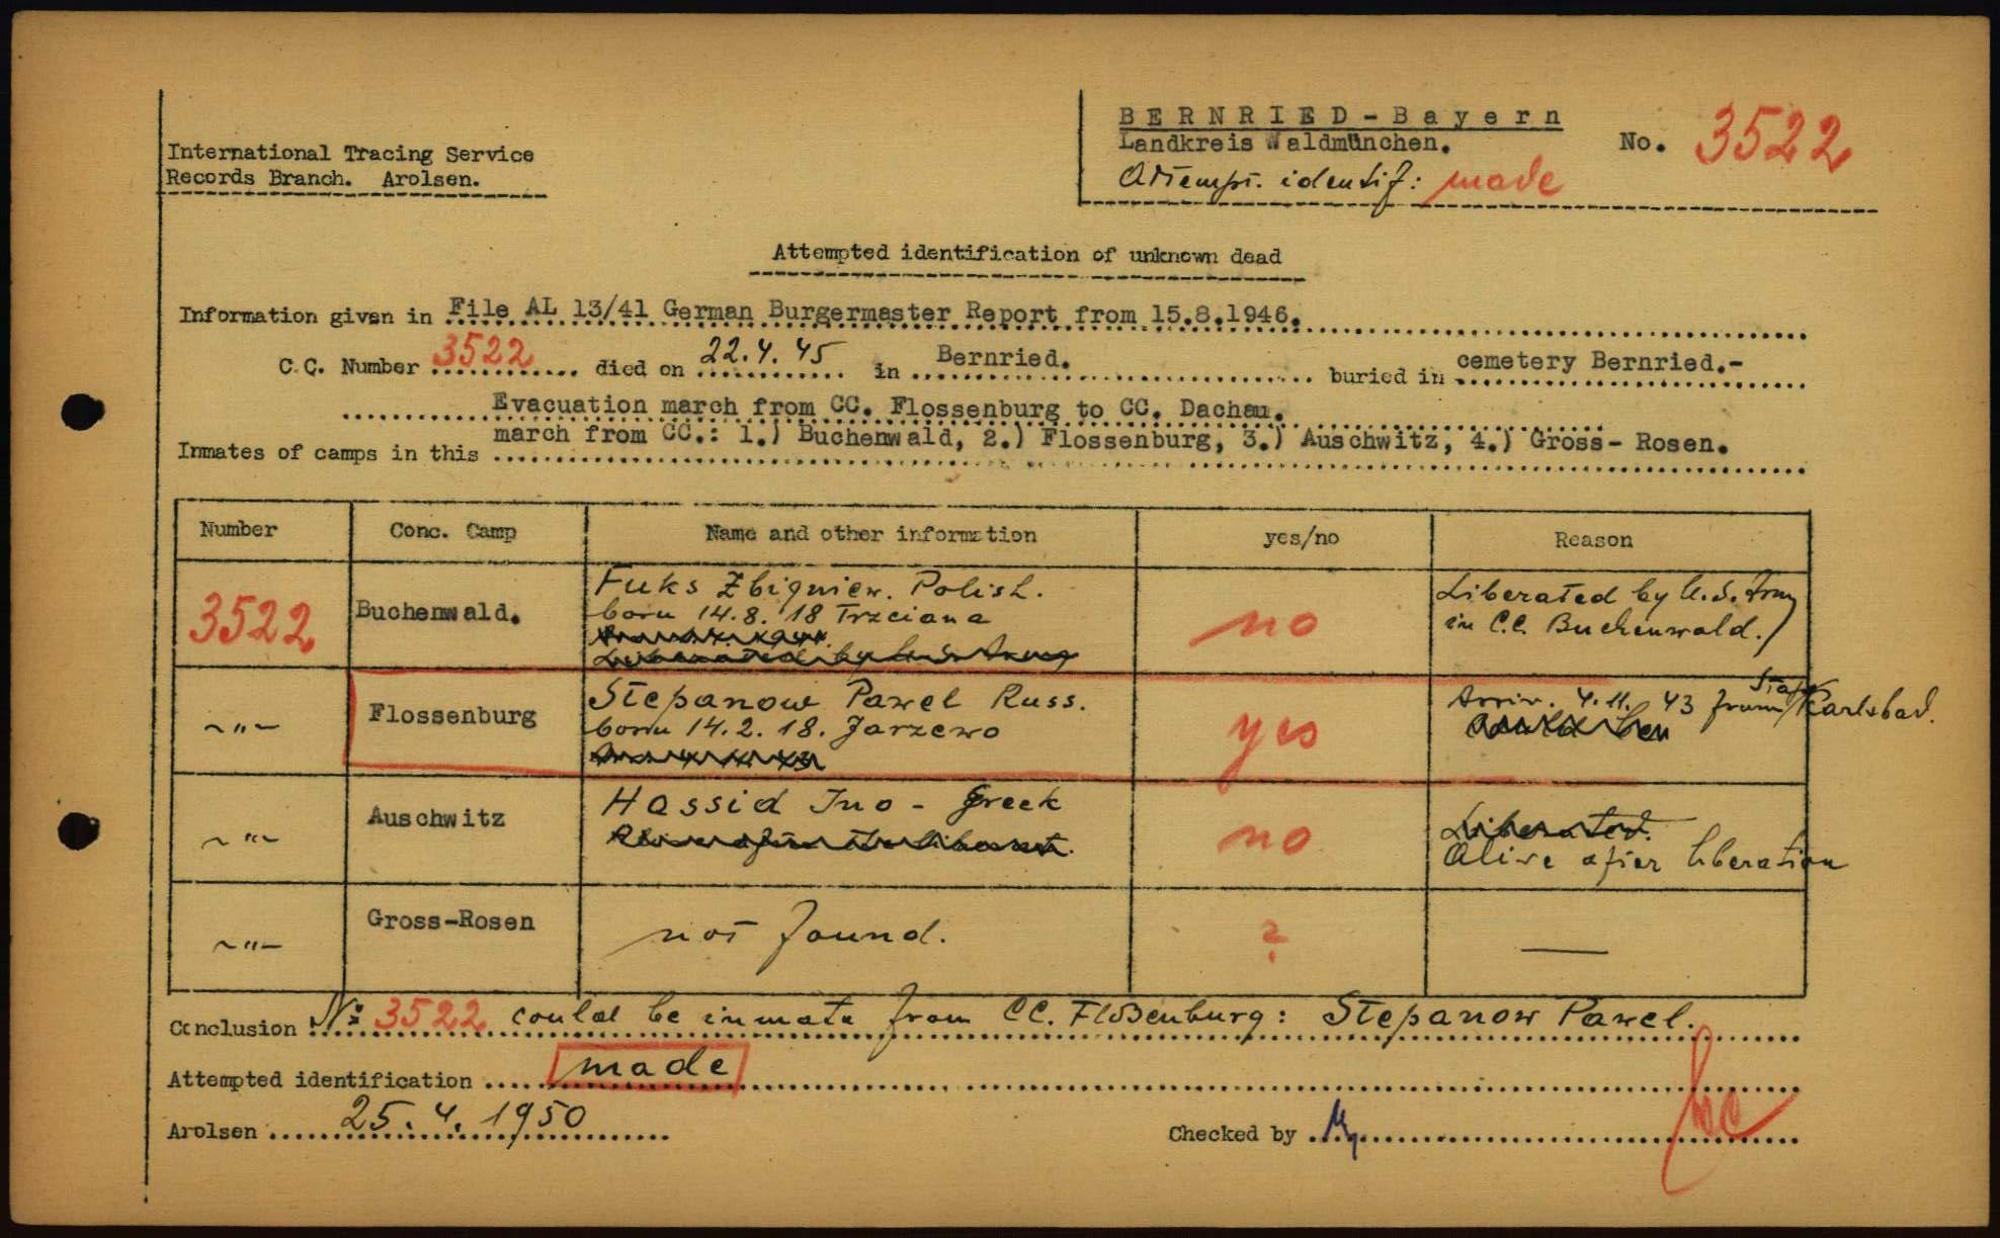 International Tracing Service
Records Branch. Arolsen.
BERNRIED-Bayern
Landkreis Waldmünchen.
No. 3522
Attempt. identif: made
Attempted identification of unknown dead
Information given in File AL 13/41 German Burgermaster Report from 15.8.1946.
C.C. Number 3522 died on 22.4.45 in Bernried. buried in cemetery Bernried.-
Evacuation march from CC. Flossenburg to CC. Dachau.
Inmates of camps in this march from CC.: 1.) Buchenwald, 2.) Flossenburg, 3.) Auschwitz, 4.) Gross-Rosen.
Number Conc. Camp Name and other information yes/no Reason
3522 Buchenwald. Fuks Zbigniew. Polish. no Liberated by U.S. Army
born 14.8.18 Trzciana in C.C. Buchenwald.
Liberated by U.S. Army
~"~ Flossenburg Stepanow Pawel Russ. yes Arriv. 4.11.43 from Karlsbad.
born 14.2.18. Jarzewo
~"~ Auschwitz Hassid Ino - Greek no Liberated.
Alive after liberation
~"~ Gross-Rosen not found. ? —
Conclusion N: 3522 could be inmate from CC. Floßenburg: Stepanow Pawel.
Attempted identification made
Arolsen 25.4.1950
Checked by